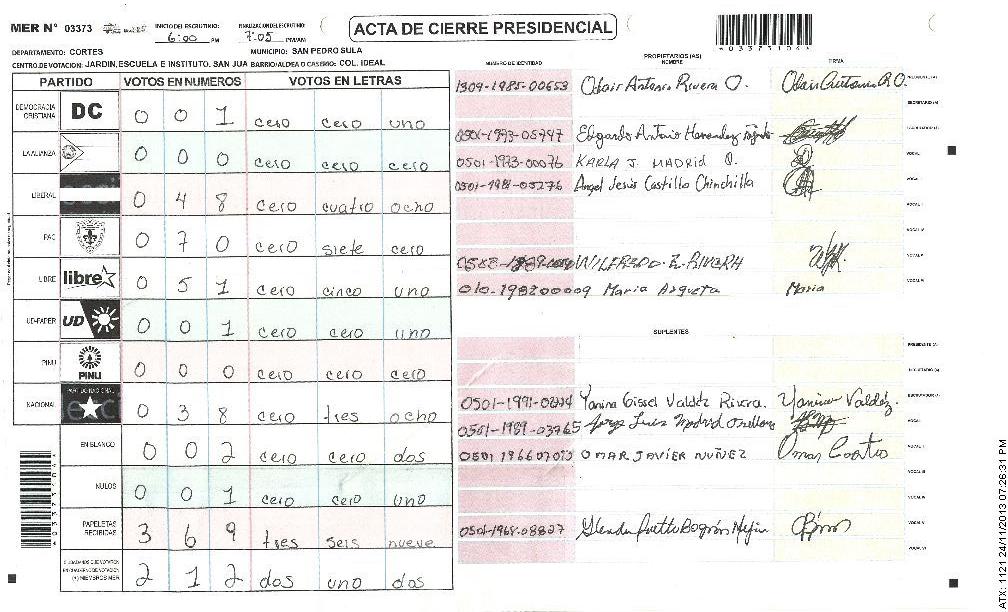 MER N° 03373
INICIO DEL ESCRUTINIO: 6:00 PM
FINALIZACION DEL ESCRUTINIO: 7:05 PM/AM
ACTA DE CIERRE PRESIDENCIAL
DEPARTAMENTO: CORTES
MUNICIPIO: SAN PEDRO SULA
CENTRO DE VOTACION: JARDIN,ESCUELA E INSTITUTO. SAN JUA BARRIO/ALDEA O CASERIO: COL. IDEAL
PARTIDO VOTOS EN NUMEROS VOTOS EN LETRAS
DEMOCRACIA CRISTIANA DC 0 0 1 cero cero uno
LA ALIANZA 0 0 0 cero cero cero
LIBERAL 0 4 8 cero cuatro ocho
PAC 0 7 0 cero siete cero
LIBRE libre 0 5 1 cero cinco uno
UD-FAPER UD 0 0 1 cero cero uno
PINU PINU 0 0 0 cero cero cero
NACIONAL PARTIDO NACIONAL 0 3 8 cero tres ocho
EN BLANCO 0 0 2 cero cero dos
NULOS 0 0 1 cero cero uno
PAPELETAS RECIBIDAS 3 6 9 tres seis nueve
CIUDADANOS QUE VOTARON EN CUADERNO DE VOTACION (+) MIEMBROS MER 2 1 2 dos uno dos
NUMERO DE IDENTIDAD
PROPIETARIOS (AS)
NOMBRE
FIRMA
1309-1985-00653 Obair Antonio Rivera O. Obair Antonio R.O.
Edgardo Antonio Hernandez
0501-1973-00076 KARLA J. MADRID O.
Angel Jesús Castillo Chinchilla
WILFREDO RIVERA
Maria Argueta Maria
SUPLENTES
PRESIDENTE (A)
Yanina Gissel Valdéz Rivera. Yanina Valdéz.
0501-1989-03765 Jorge Luis Madrid Orellana
OMAR JAVIER NUÑEZ Omar
0501-1968-08827
*03373104*
ATX: 1121 24/11/2013 07:26:31 PM